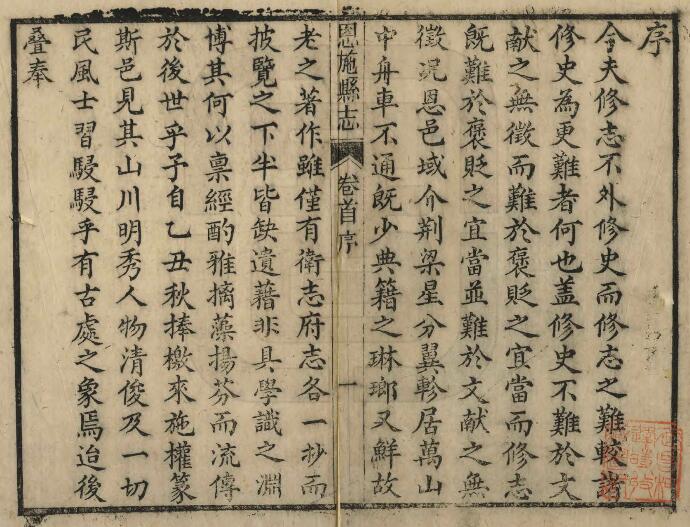 序
今夫修志不外修史而修志之難較諸
修史為更難者何也盖修史不難於文
献之無徵而難於褒貶之宜當而修志
既難於褒貶之宜當並難於文献之無
徵況恩邑域介荆梁星分翼軫居萬山
中舟車不通既少典籍之琳瑯又鮮故
恩施縣志 卷首序 一
老之著作雖僅有衛志府志各一抄而
披覽之下半皆缺遺藉非具學識之淵
博其何以禀經酌雅摛藻揚芬而流傳
於後世乎予自乙丑秋捧檄來施權篆
斯邑見其山川明秀人物清俊及一切
民風士習駸駸乎有古處之象焉迨後
叠奉